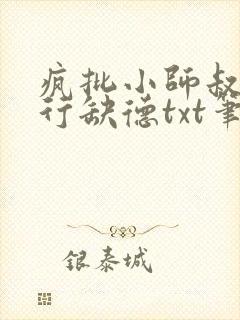 疯批小师叔
行缺德txt笔
银泰城